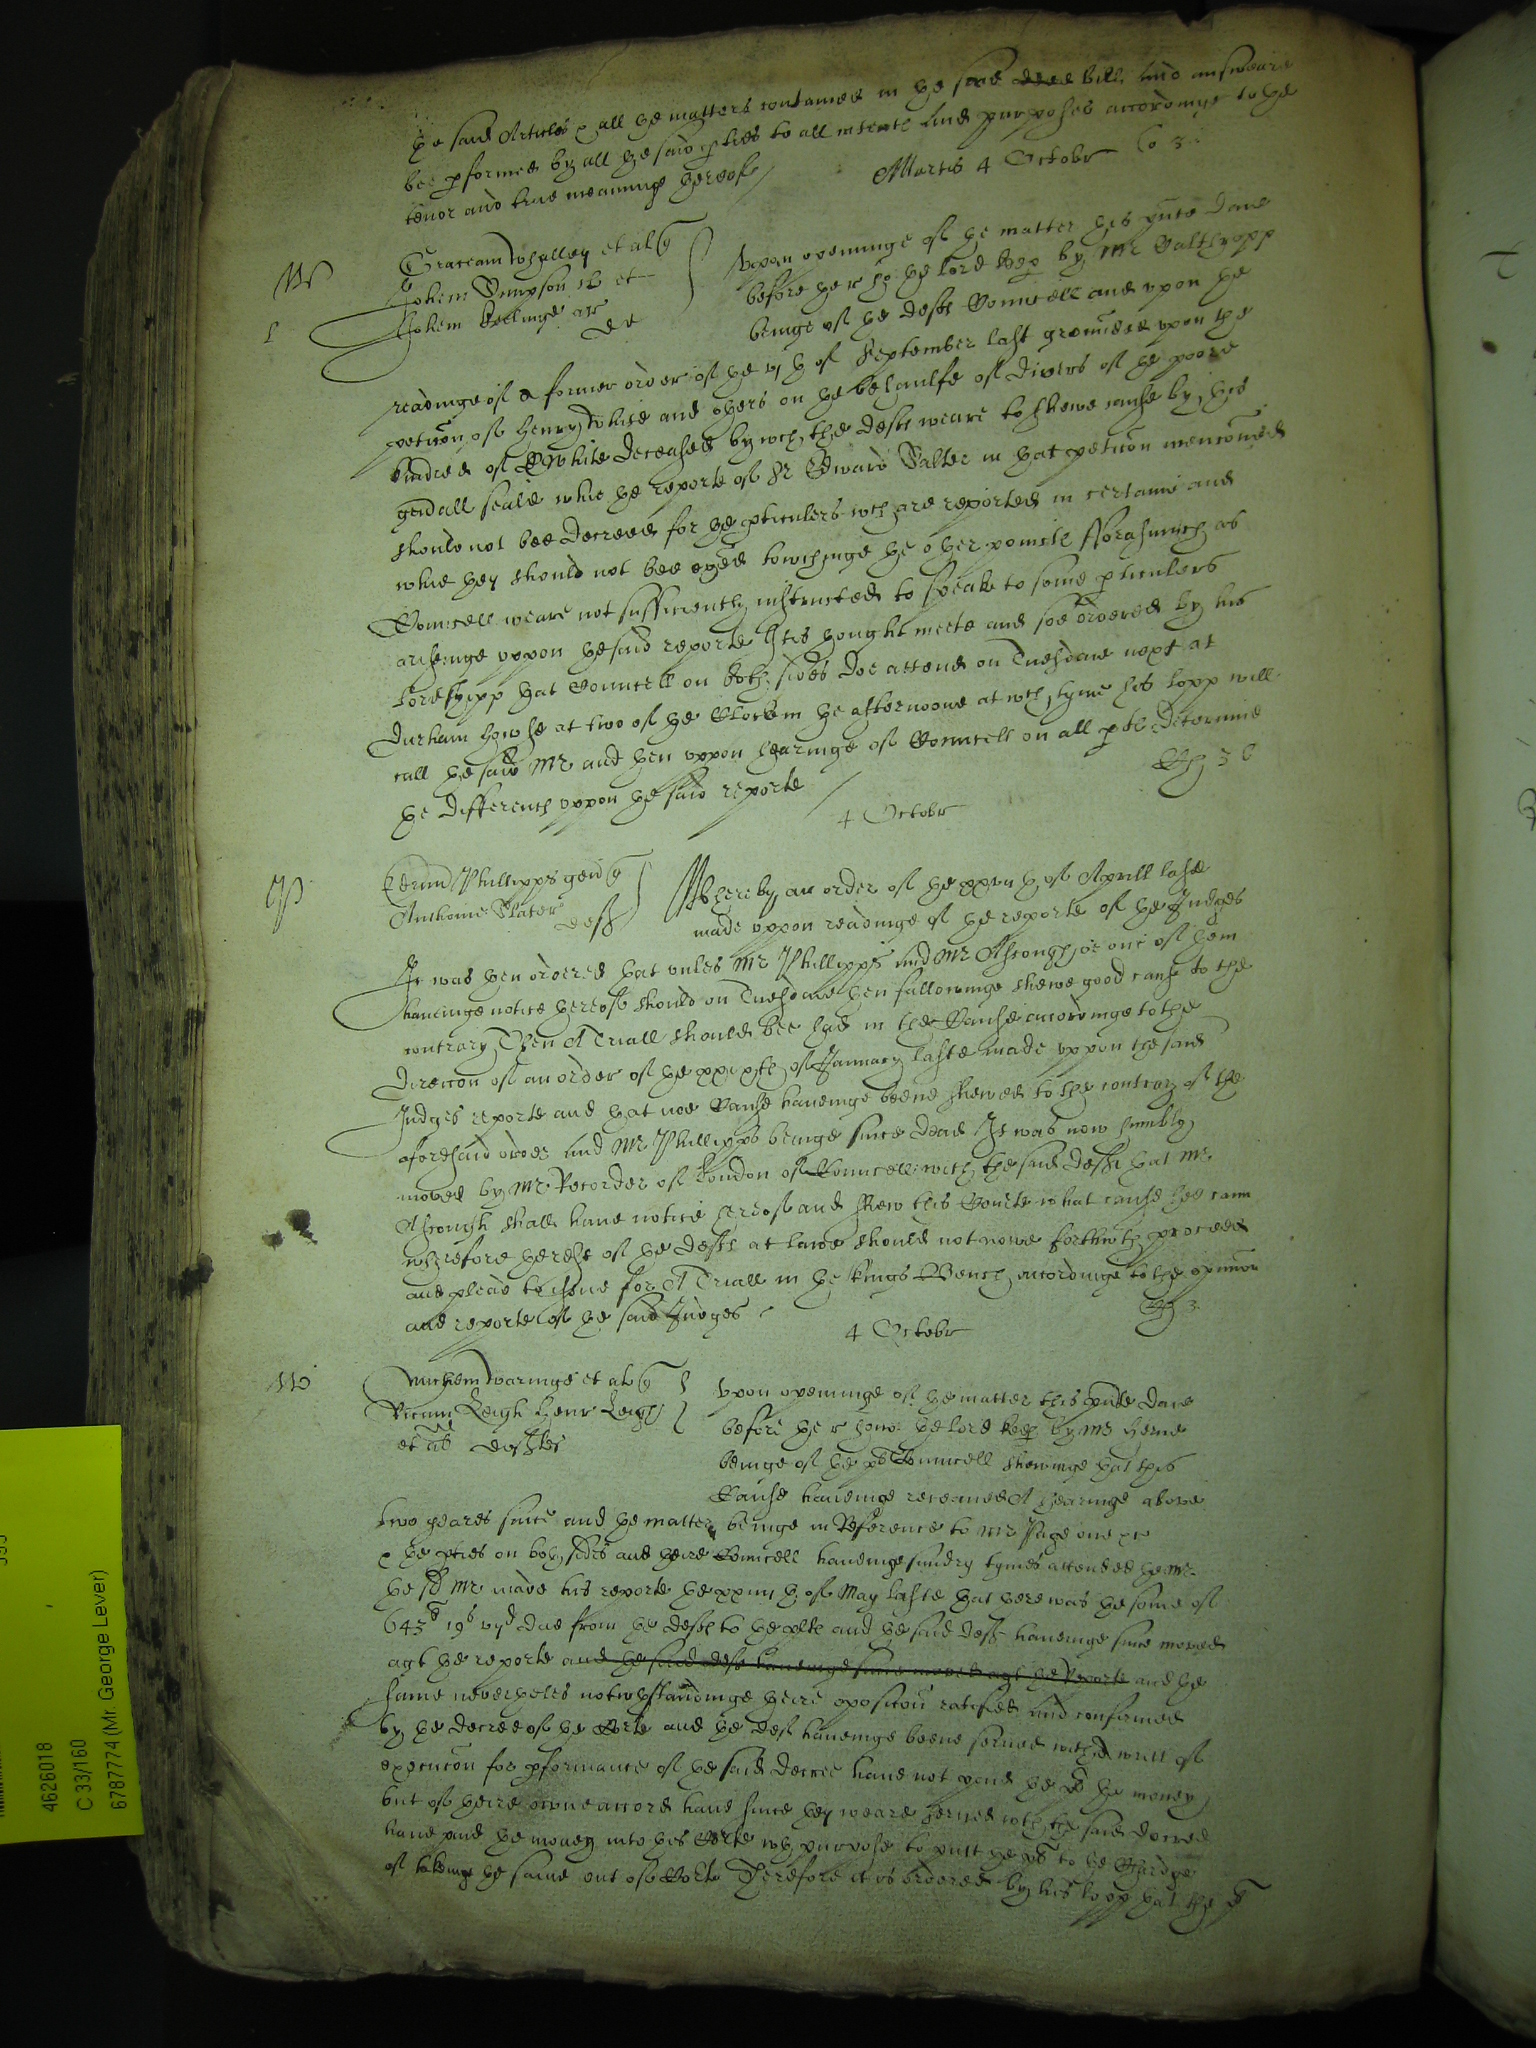 ye said Articles & all ye matters contained in ye said bill and answeare
bee pformed by all ye said pties to all intents and purposes accordinge to ye
tenor and true meaninge thereof
Martis 4 Octobr
W
Graceam Whalley et al
Johem Simpson et
Johem ar
Upon openinge of ye matter this pnte daie
before ye r ho: ye lord keep by Mr Calthropp
beinge of ye defts Councell and upon ye
readinge of a former order of ye of September last grounded upon the
peticon of Henry White and others on ye behaulfe of divers of ye poore
kindred of White deceased by wch the defts weare to shewe cause by this
genrall seale whie ye reporte of Sr Edward Salter in that peticon mencõned
should not bee decreed for ye pticulers wch are reported in certaine and
whie they should not bee towchinge ye other points fforasmuch as
Councell weare not sufficiently instructed to speake to some pticulers
arisinge uppon ye said reporte It is thought meete and soe ordered by his
lordshipp that Councell on both sides doe attend on Tuesdaie next at
Durham howse at two of ye Clock in ye afternoone at wch tyme his lopp will
call ye said Mr and then uppon hearinge of Councell on all pts determine
ye differences uppon ye said reporte
4 Octobr
P
Phillipps gen
Anthonie Slater
deft
Whereby an order of ye of Aprill laste
made uppon readinge of ye reporte of ye Judges
It was then ordered that unles Mr Phillipps and Mr Ascough or one of them
haveinge notice thereof should on Tuesdaie then followinge shewe good cause to the
contrary Then A Triall should bee had in the Cause accordinge to the
direccon of an order of ye of January laste made uppon the said
Judges reporte and that noe Cause haveinge beene shewed to the contrary of the
aforesaid order and Mr Phillipps beinge since dead It was now humbly
moved by Mr Recorder of London of Councell with the said deft that Mr
Ascough shall have notice hereof and shew this Courte what cause hee cann
wherefore of ye defts at lawe should not nowe forthwth proceed
and plead to issue for A Triall in ye Kings Bench accordinge to the opinion
and reporte of ye said Judges
4 Octobr
W
Waringe et al
Leigh Henr Leigh
et al deftes
Upon openinge of ye matter this pnte daie
before ye r hono: ye lord keep by Mr Herne
beinge of ye pts Councell shewinge that this
Cause haveinge receaved A hearinge above
two yeares since and ye matter beinge in Reference to Mr Page one &c
& ye pties on both sides and theire Councell haveinge sundry tymes attended ye Mr
ye sd Mr made his reporte ye of May laste that there was ye some of
643 19s due from ye defts to ye plts and ye said defts haveinge since moved
agt ye reporte and ye said defts haveinge since moved agt ye Reporte and ye
same neverthelesse notwthstandinge theire oposicon ratified and confirmed
by ye decree of ye Corte and ye deft haveinge beene served with a writt of
execucon for pformance of ye said decree have not paid ye plt ye money
but of theire owne accord have since they weare served wth the said decree
have paid ye money into this Corte wth purpose to putt ye plt to ye Chardge
of takeing ye same out of Corte Therefore it is ordered by his lopp that the
4626018
C 33/160
6787774 (Mr. George Lever)